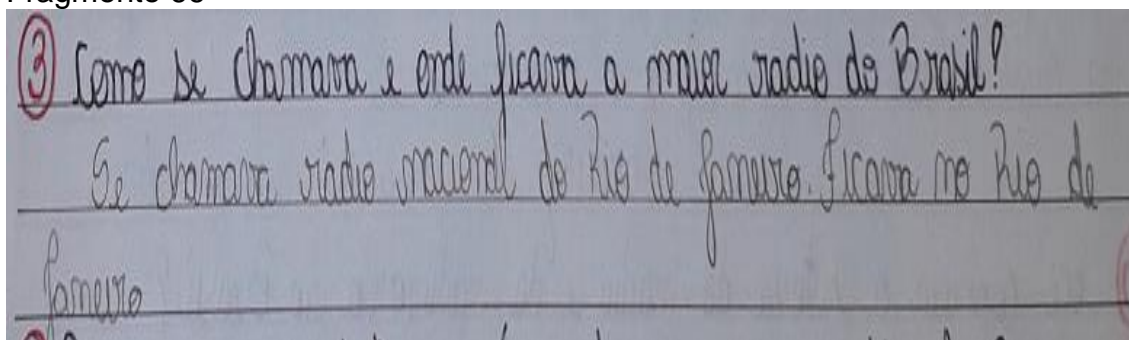 ③ Como se chamava e onde ficava a maior radio do Brasil?
Se chamava radio nacional do Rio de Janeiro. ficava no Rio de
Janeiro